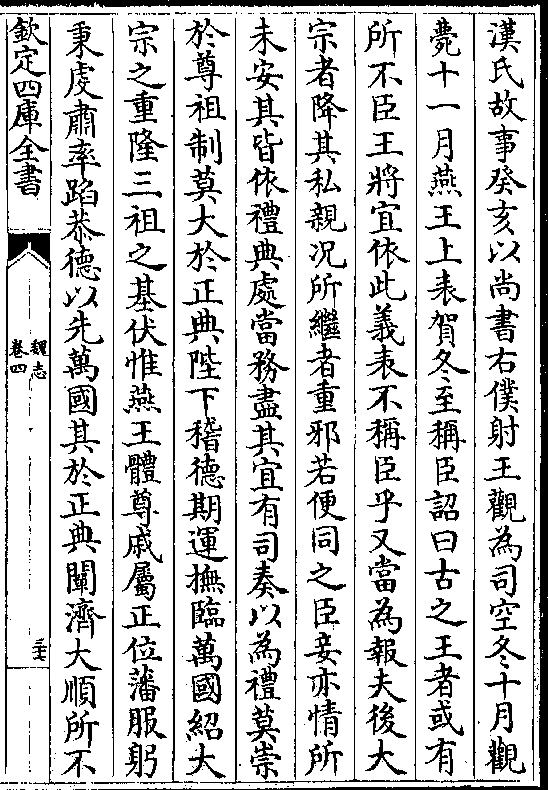 漢氏故事癸亥以尚書右僕射王觀為司空冬十月觀
薨十一月燕王上表賀冬至稱臣詔曰古之王者或有
所不臣王將宜依此義表不稱臣乎又當為報夫後大
宗者降其私親况所繼者重邪若便同之臣妾亦情所
未安其皆依禮典處當務盡其宜有司奏以為禮莫崇
於尊祖制莫大於正典陛下稽德期運撫臨萬國紹大
宗之重隆三祖之基伏惟燕王體尊戚屬正位藩服躬
秉虔肅率蹈恭德以先萬國其於正典闡濟大順所不
欽定四庫全書
魏志
卷四
三七